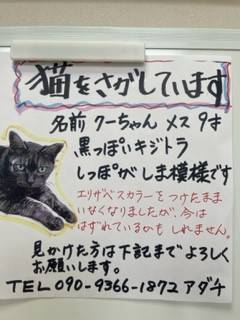 猫をさがしています
名前 クーちゃん メス 9才
黒っぽいキジトラ
しっぽがしま模様です
エリザベスカラーをつけたまま
いなくなりましたが、今は
はずれているかもしれません。
見かけた方は下記までよろしく
お願いします。
TEL 090-9366-1872 アダチ